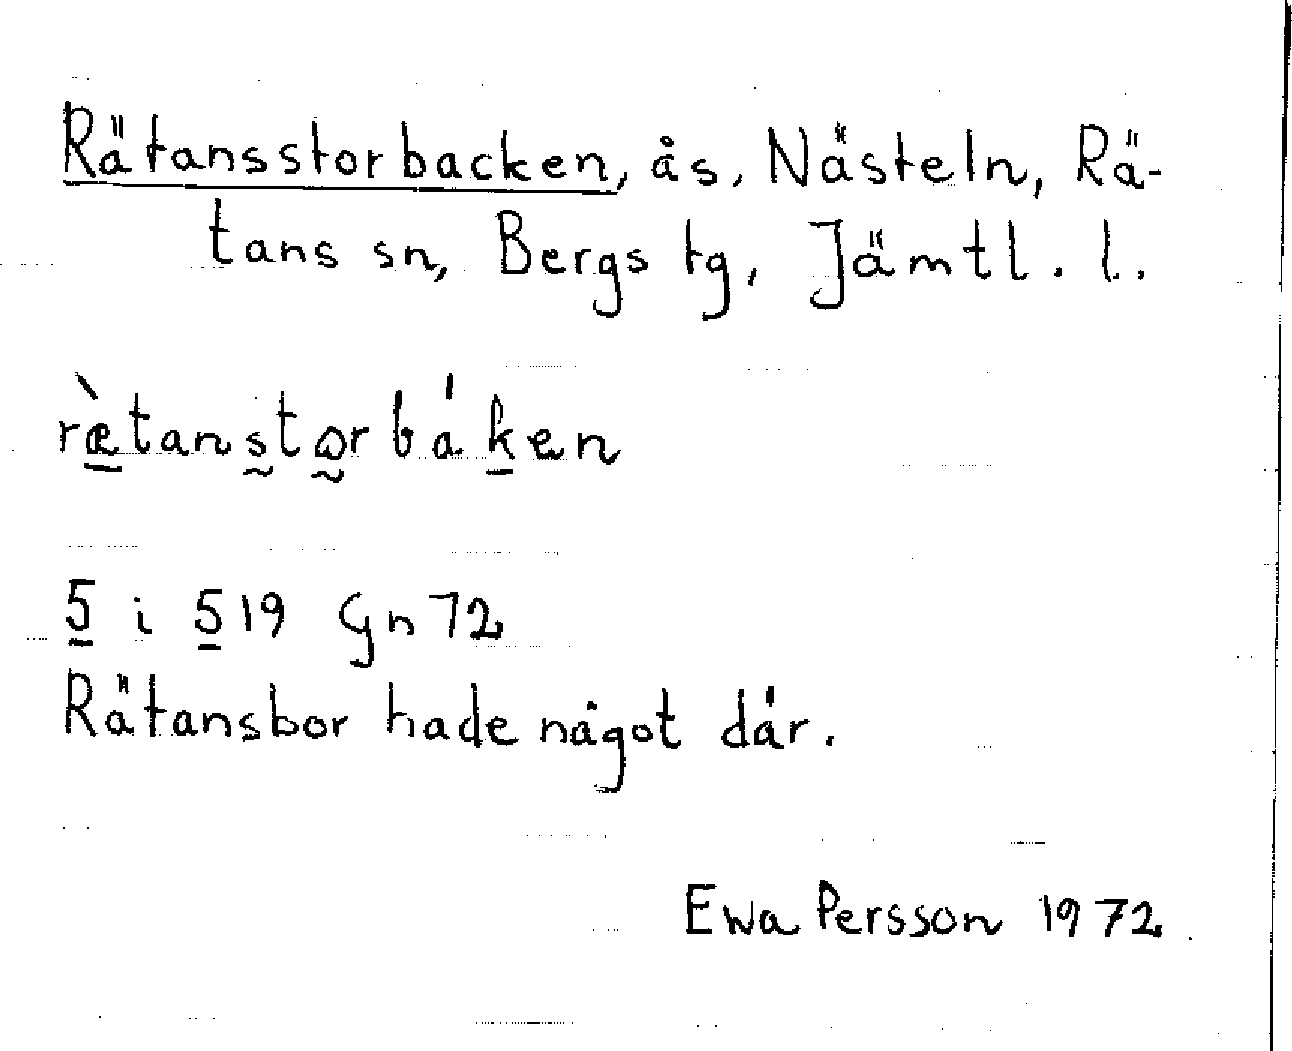 Rätansstorbacken, ås, Nästeln, Rä-
tans sn, Bergs tg, Jämtl. l.
ræ̀tanstorbáken
5 i 519 Gn 72
Rätansbor hade något där.
Ewa Persson 1972